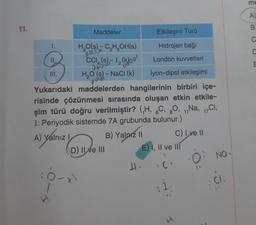 11.
Maddeler
Etkileşim Türü
I.
H₂O(s) - C₂H₅OH(s)
Hidrojen bağı
II.
CCl₄ (s) - I₂ (k)
London kuvvetleri
III.
H₂O (s) - NaCl (k)
İyon-dipol etkileşimi
Yukarıdaki maddelerden hangilerinin birbiri içe-
risinde çözünmesi sırasında oluşan etkin etkile-
şim türü doğru verilmiştir? (₁H, ₆C, ₈O, ₁₁Na, ₁₇Cl,
I: Periyodik sistemde 7A grubunda bulunur.)
A) Yalnız I
B) Yalnız II
C) I ve II
D) II ve III
E) I, II ve III
A)
B)